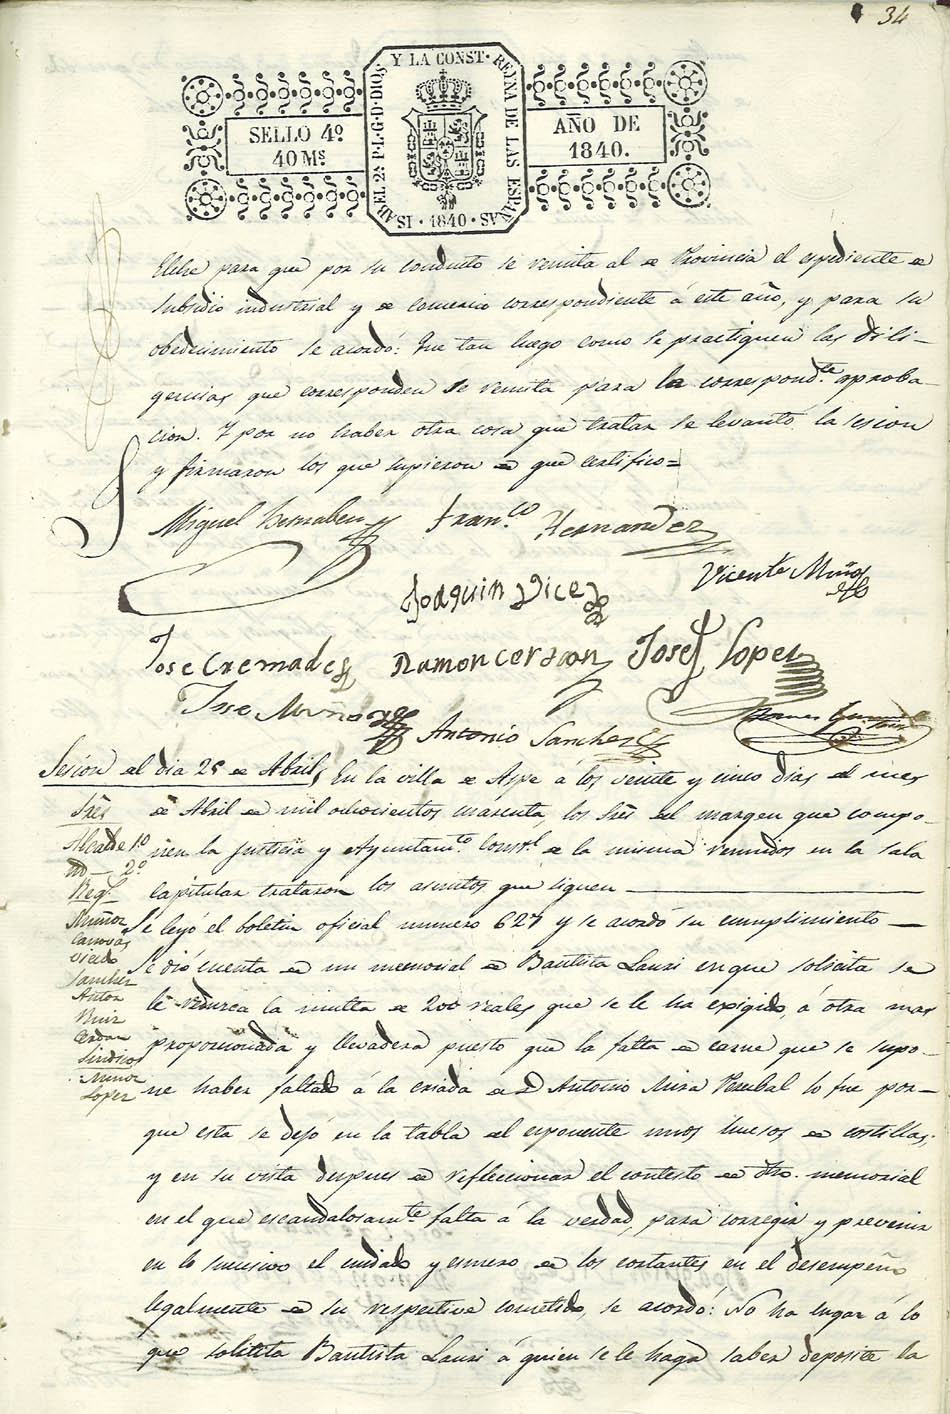 34
SELLO 4º
40 Ms
ISABEL 2ª P.L.G.D.DIOS Y LA CONST. REYNA DE LAS ESPAÑAS
· 1840 ·
AÑO DE
1840.
Elche para que por su conducto se remita al de Provincia el espediente de
subsidio industrial y de comercio correspondiente á este año, y para su
obedecimiento se acordó: Que tan luego como se practiquen las dili-
gencias que corresponden se remita para la correspond.te aproba-
cion. Y por no haber otra cosa que tratar se levantó la sesion
y firmaron los que supieron de que certifico=
Miguel Bernabeu Fran.co Hernandez
Vicente Muñoz
Joaquin Vicedo
Jose Cremades Ramon cerdan Josef Lopez
Jose Muñoz
Antonio Sanchez
Sesion del dia 25 de Abril
En la villa de Aspe á los veinte y cinco dias del mes
de Abril de mil ochocientos cuarenta, los Sres del margen que compo-
nen la Justicia y Ayuntam.to Const.l de la misma reunidos en la sala
Capitular trataron los asuntos que siguen
Sres
Alcalde 1º
id — 2º
Reg.s
Muñoz
Canovas
Vicedo
Sanchez
Anton
Ruiz
Cerdan
Sindicos
Muñoz
Lopez
Se leyó el boletin oficial numero 627 y se acordó su cumplimiento
Se dió cuenta de un memorial de Bautista Lauri en que solicita se
le reduzca la multa de 200 reales que se le ha exigido, á otra mas
proporcionada y llevadera puesto que la falta de carne que se supo-
ne haber faltado á la criada de D Antonio Mira Percebal lo fue por-
que esta se dejó en la tabla del esponente unos huesos de costillas;
y en su vista despues de refleccionar el contesto de dho. memorial
en el que escandalosam.te falta á la verdad, para corregir y prevenir
en lo sucesivo el cuidado y esmero de los cortantes en el desempeño
legalmente de su respectivo cometido, se acordó: No ha lugar á lo
que solicita Bautista Lauri á quien se le haga saber deposite la